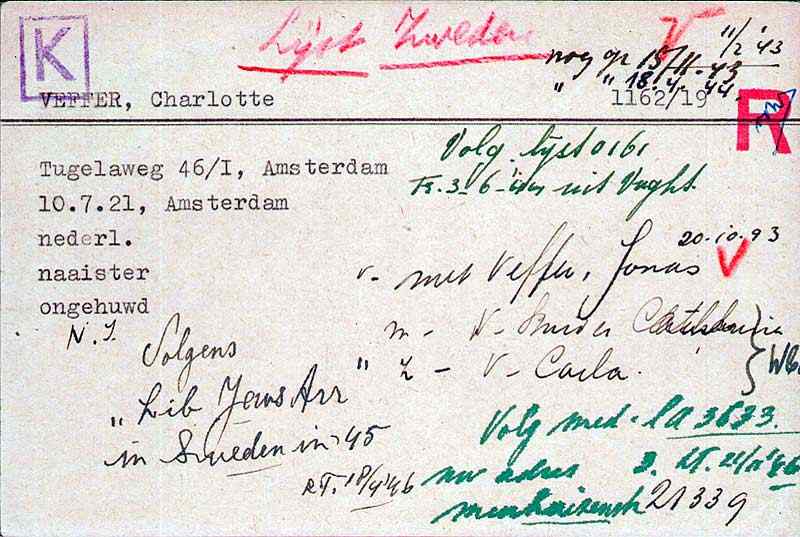 K
Lijst Zweden
V
11/2 '43
nog op 15/11-43
" " 18.4.44.
VEFFER, Charlotte
1162/19
R
Tugelaweg 46/I, Amsterdam
10.7.21, Amsterdam
nederl.
naaister
ongehuwd
N.I.
Volg. lijst 0161
Tr. 3-6- uit Vught.
20.10.93
v- met Veffer, Jonas V
m - V-
" Z - V- Carla.
Volgens
" Lib Jews Arr
in Sweden in 45
RT. 18/4/46
Volg med. LA 3633.
nw adres
21339